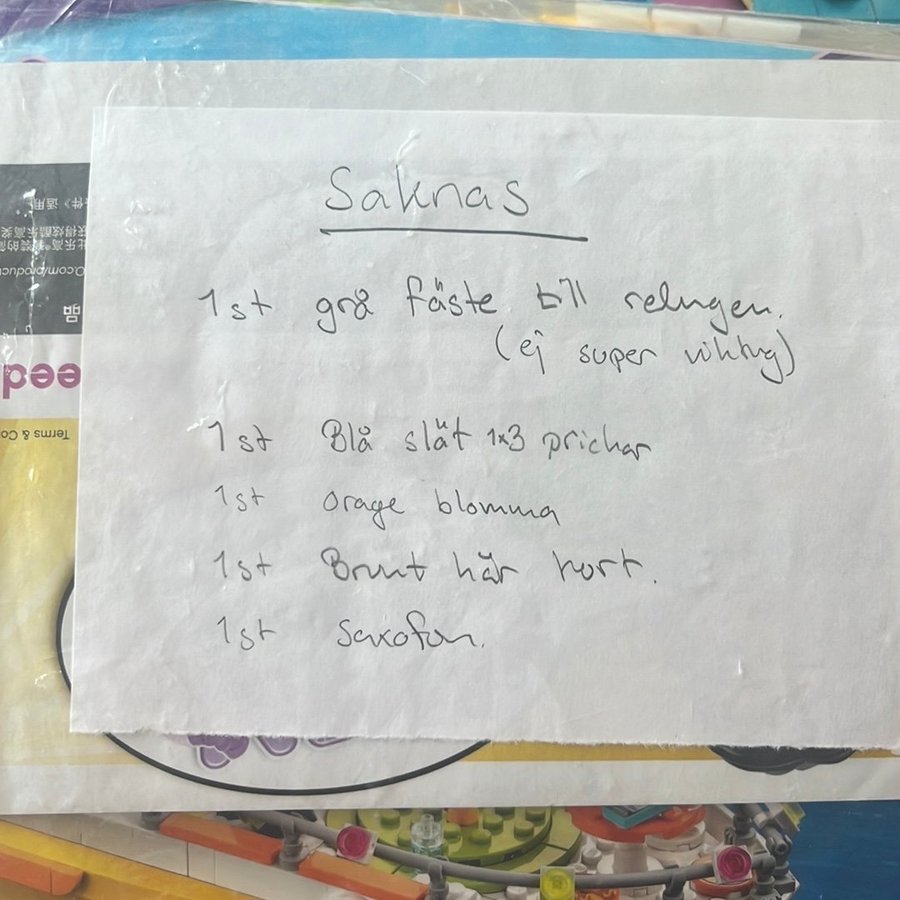 Saknas
1st grå fäste till relingen.
(ej super viktig)
1st Blå slät 1x3 prickar
1st Orage blomma
1st Brunt hår kort.
1st Saxofon.
件》适用
获得炫酷乐高奖
O.com/produc
品
eed
Terms & Co